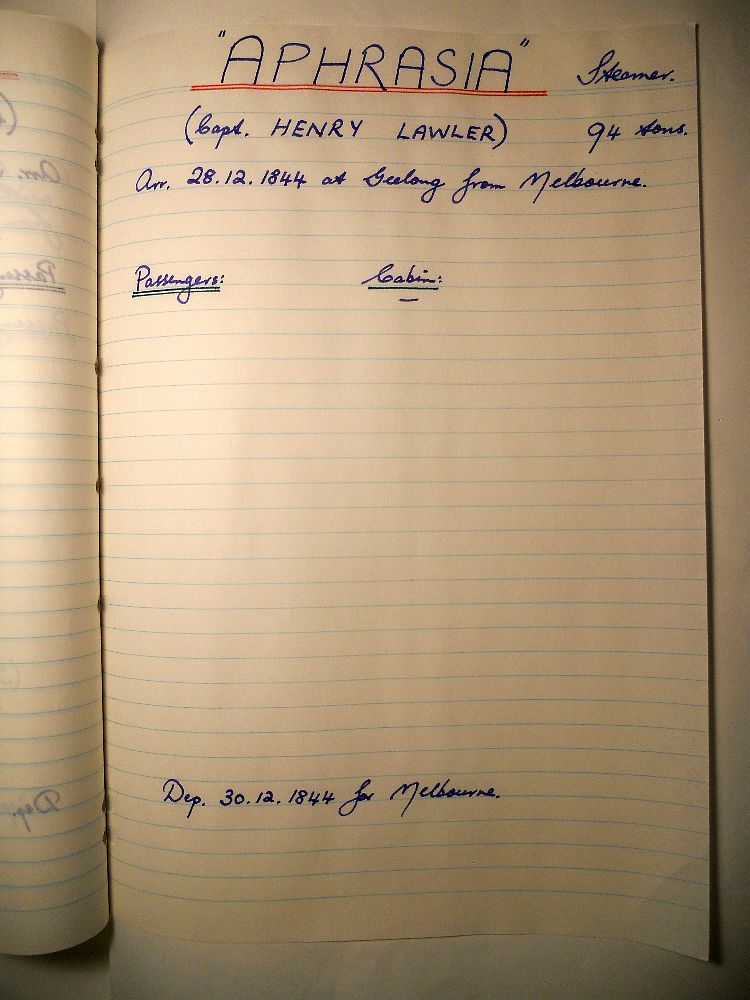 "APHRASIA" Steamer.
(Capt. HENRY LAWLER) 94 tons.
Arr. 28.12.1844 at Geelong from Melbourne.
Passengers: Cabin:
Dep. 30.12.1844 for Melbourne.